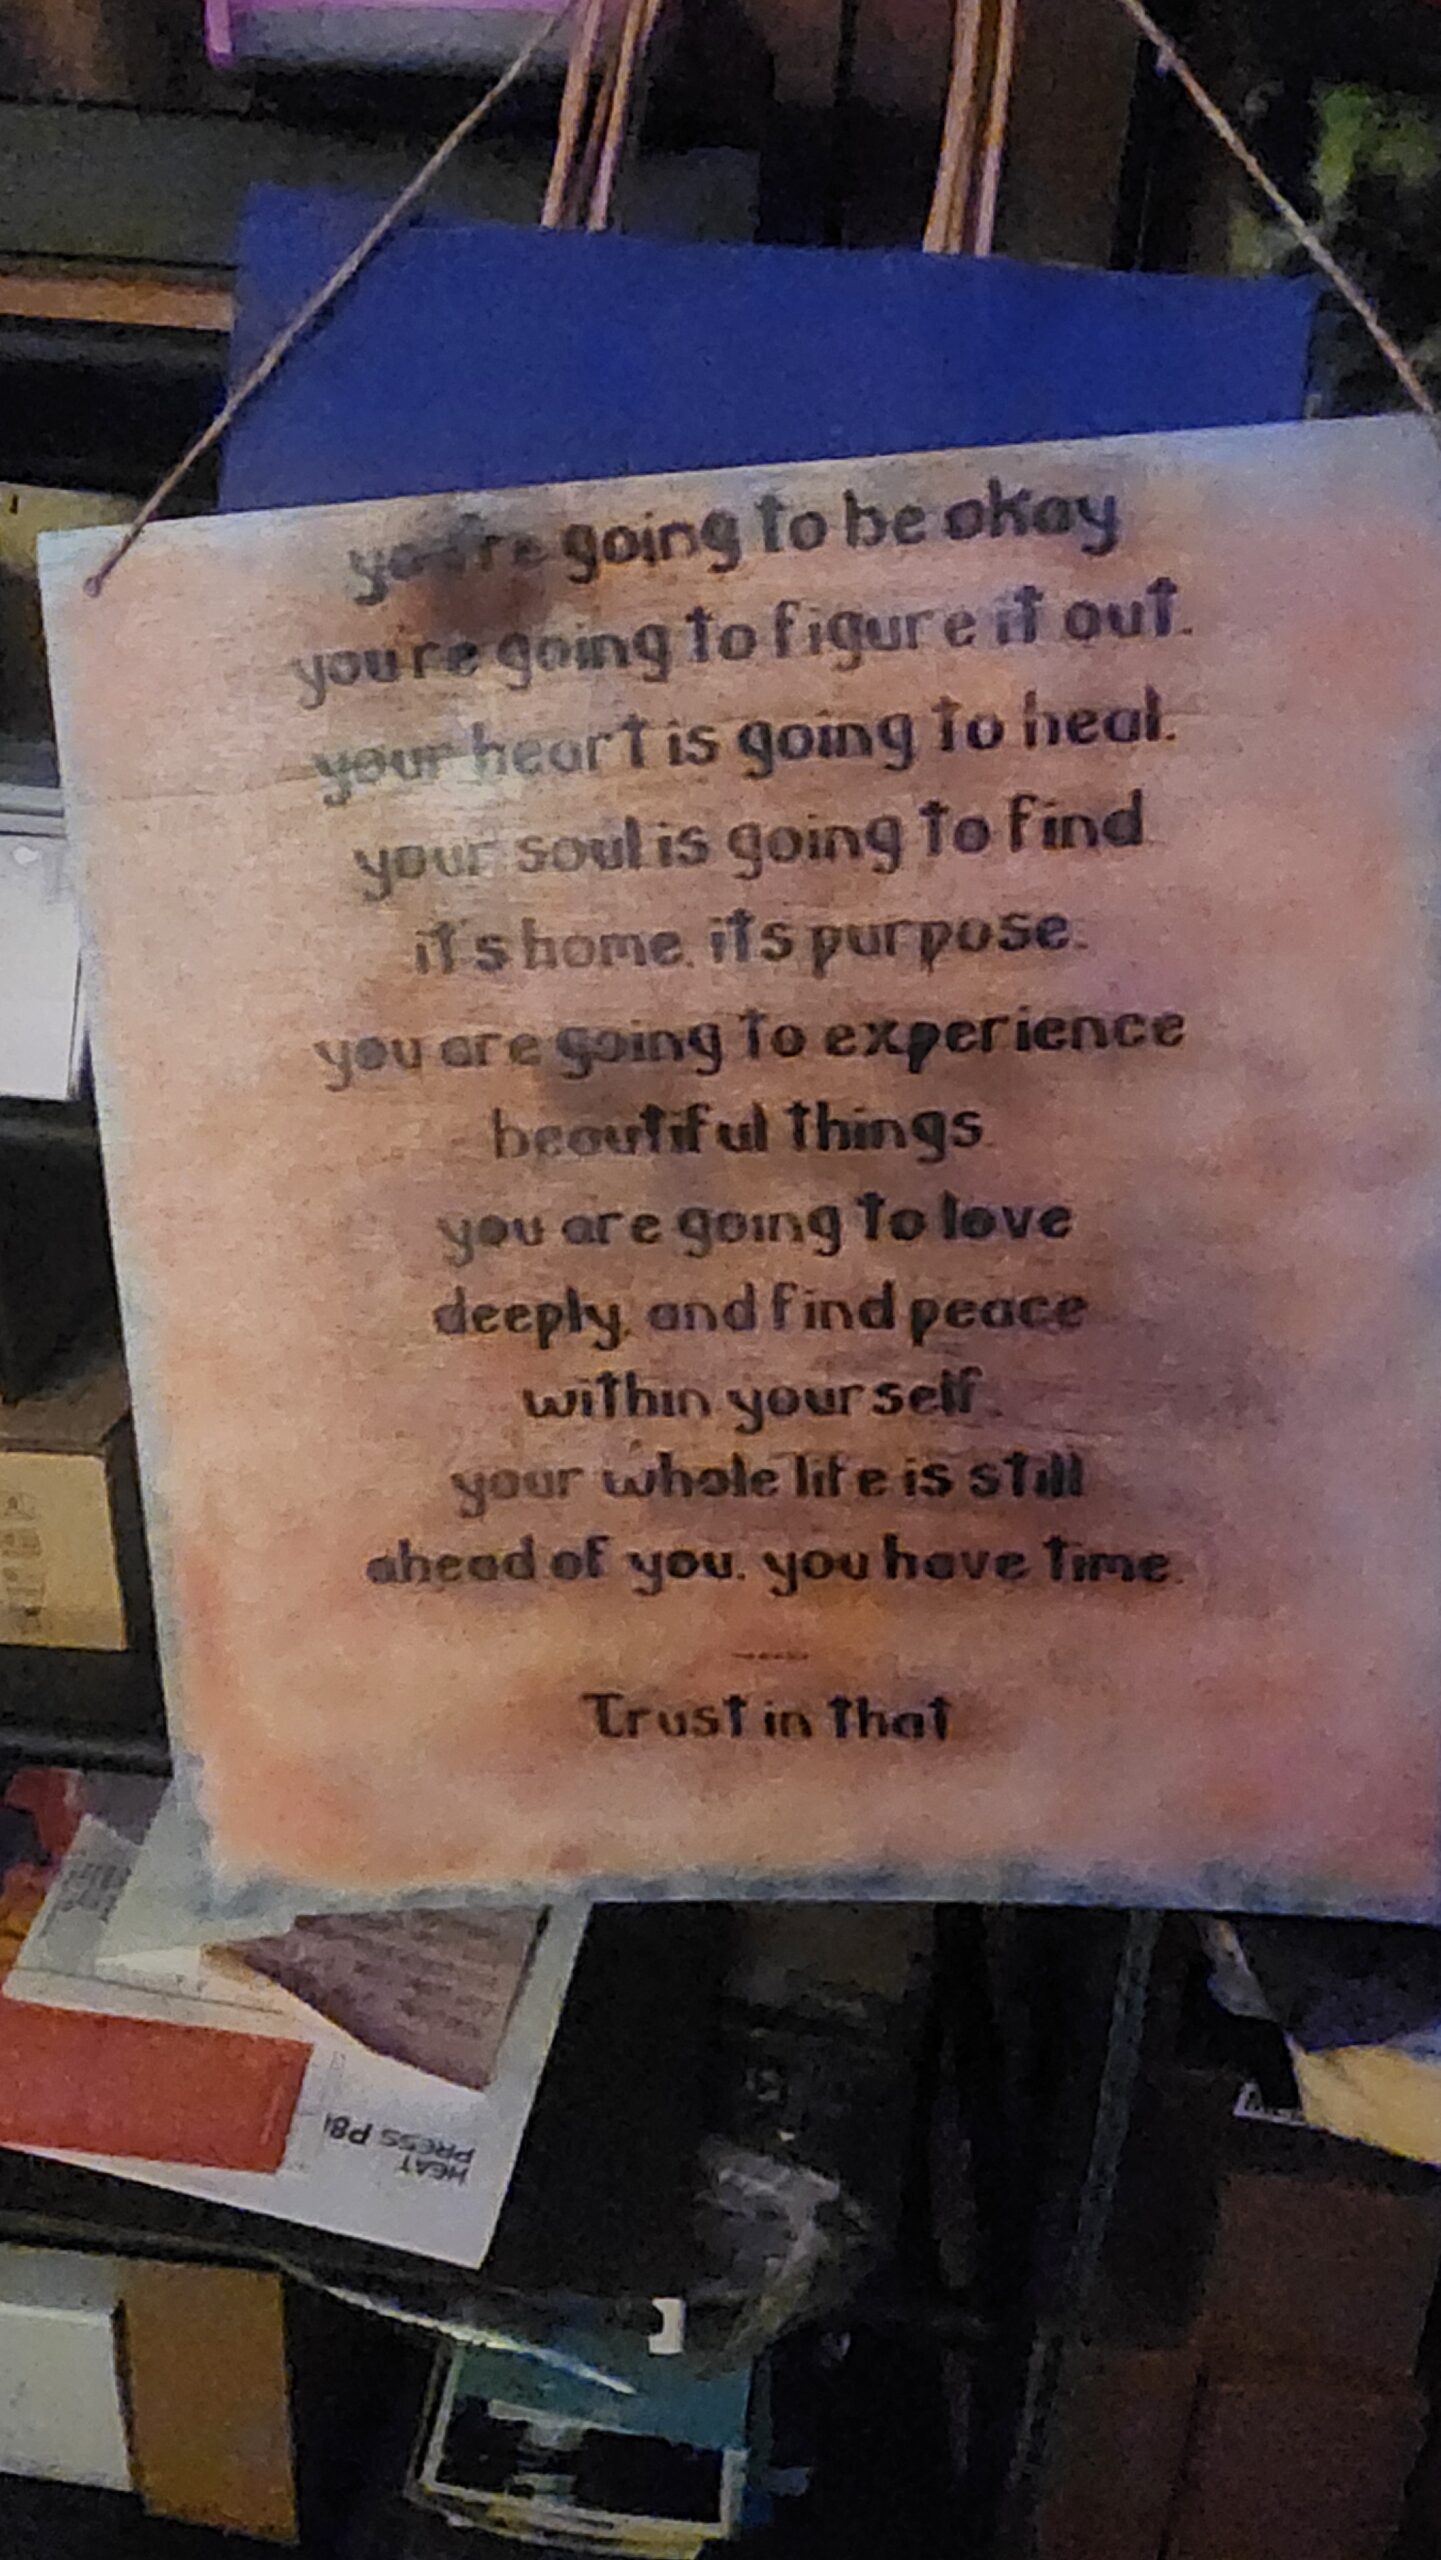 you're going to be okay
you're going to figure it out.
your heart is going to heal.
your soul is going to find
it's home. its purpose.
you are going to experience
beautiful things
you are going to love
deeply, and find peace
within yourself.
your whole life is still
ahead of you. you have time.
Trust in that
HEAT
PRESS P81